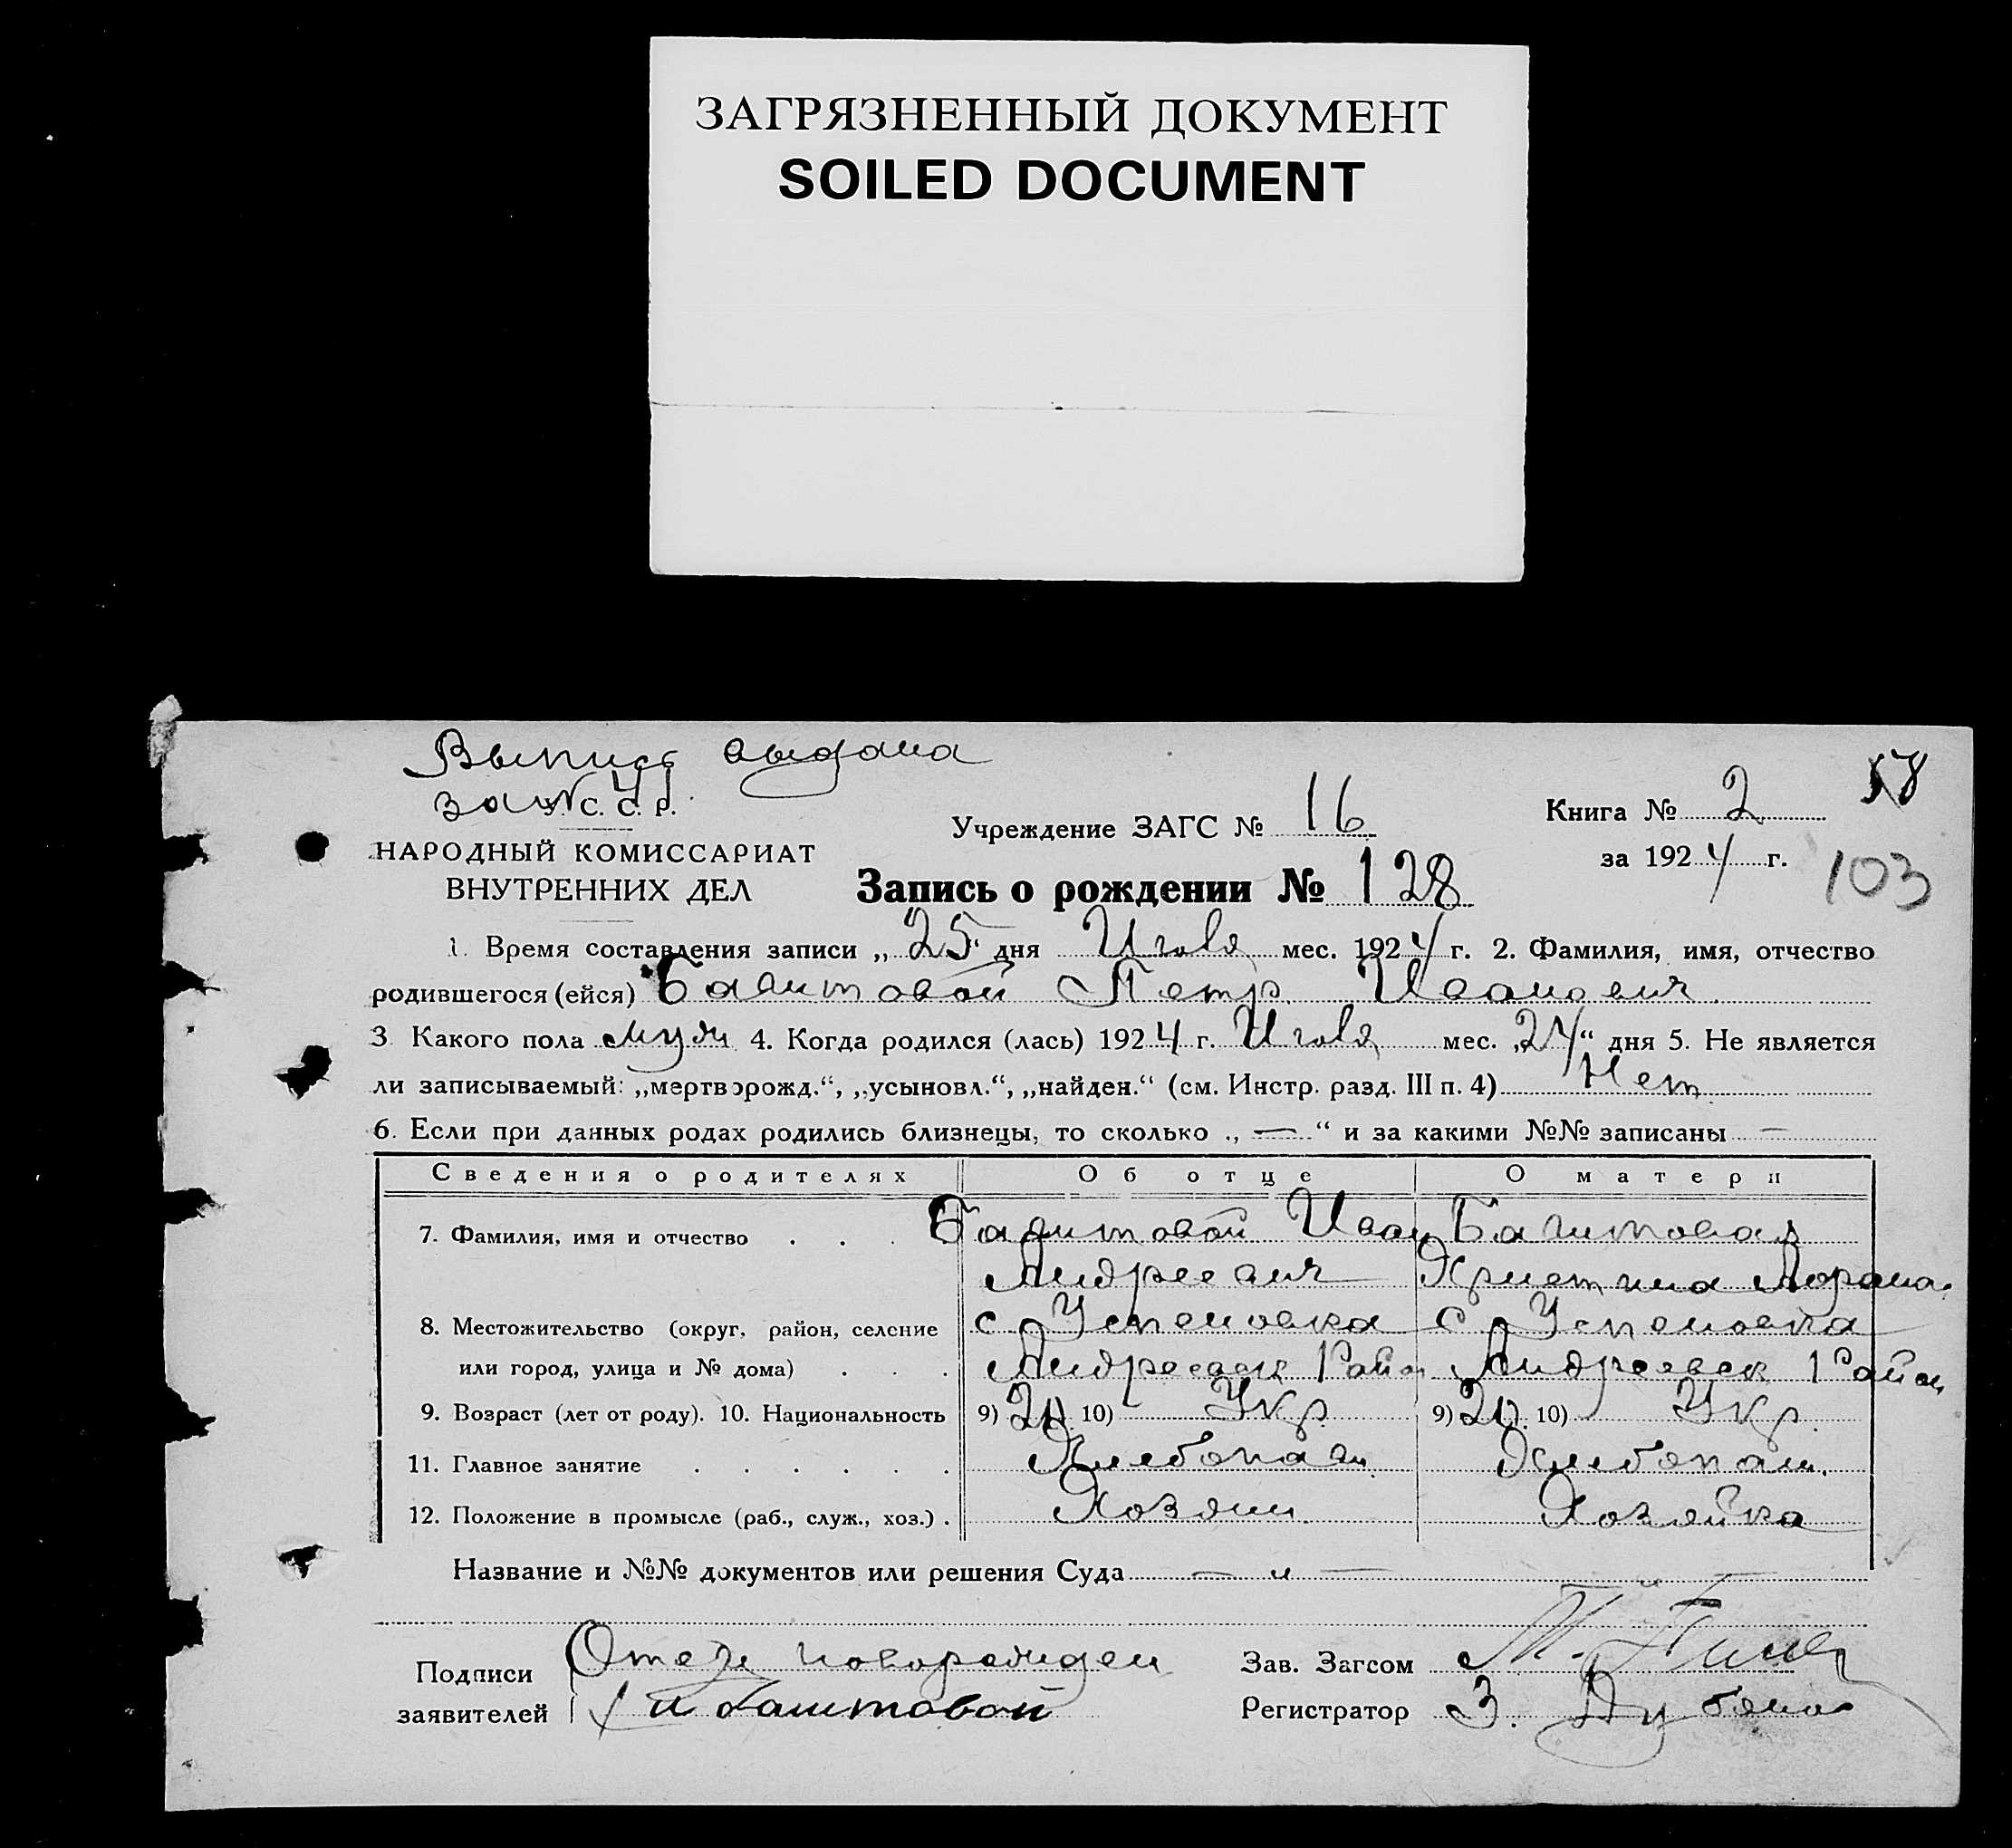 ЗАГРЯЗНЕННЫЙ ДОКУМЕНТ
SOILED DOCUMENT
Выпись выдана
за №
У. С. С. Р.
НАРОДНЫЙ КОМИССАРИАТ
ВНУТРЕННИХ ДЕЛ
Учреждение ЗАГС № 16
Книга № 2
58
за 1924 г.
103
Запись о рождении № 128
1. Время составления записи „25“ дня Июля мес. 1924 г. 2. Фамилия, имя, отчество
родившегося (ейся) Баштовой Петр Иванович
3. Какого пола муж 4. Когда родился (лась) 1924 г. Июля мес. „24“ дня 5. Не является
ли записываемый: „мертворожд.“, „усыновл.“, „найден.“ (см. Инстр. разд. III п. 4) Нет
6. Если при данных родах родились близнецы, то сколько „—“ и за какими №№ записаны —
Сведения о родителях Об отце О матери
7. Фамилия, имя и отчество . . . Баштовой Иван Баштовая
Андреевич Христина
8. Местожительство (округ, район, селение с Успеновка с Успеновка
или город, улица и № дома) . . . Андреевск Район Андреевск Район
9. Возраст (лет от роду). 10. Национальность 9) 20 10) Укр. 9) 20 10) Укр.
11. Главное занятие . . . . . . Хлебопаш. Хлебопаш.
12. Положение в промысле (раб., служ., хоз.) . Хозяин. Хозяйка
Название и №№ документов или решения Суда — " —
Подписи Отец новорожден Зав. Загсом
заявителей И Баштовой Регистратор З.